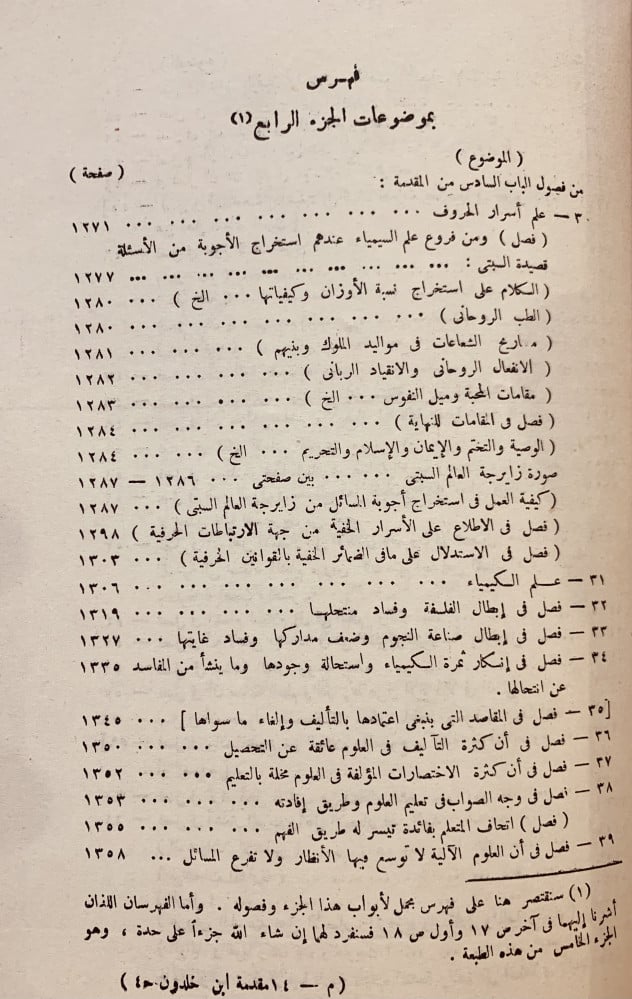 فهرس
بموضوعات الجزء الرابع (١)
( الموضوع )
( صفحة )
من فصول الباب السادس من المقدمة :
٣٠ — علم أسرار الحروف ... ... ... ... ... ... ... ... ... ١٢٧١
( فصل ) ومن فروع علم السيمياء عندهم استخراج الأجوبة من الأسئلة
قصيدة السبتى : ... ... ... ... ... ... ... ... ... ... ١٢٧٧
( الكلام على استخراج نسبة الأوزان وكيفياتها ... الخ ) ... ... ١٢٨٠
( الطب الروحانى ) ... ... ... ... ... ... ... ... ... ١٢٨٠
( مطاريح الشعاعات فى مواليد الملوك وبنيهم ) ... ... ... ... ١٢٨١
( الانفعال الروحانى والانقياد الربانى ) ... ... ... ... ... ١٢٨٢
( مقامات المحبة وميل النفوس ... الخ ) ... ... ... ... ... ١٢٨٣
( فصل فى المقامات للنهاية ) ... ... ... ... ... ... ... ١٢٨٤
( الوصية والتختم والإيمان والإسلام والتحريم ... الخ ) ... ... ١٢٨٤
صورة زايرجة العالم السبتى ... ... بين صفحتى ... ١٢٨٦ — ١٢٨٧
( كيفية العمل فى استخراج أجوبة المسائل من زايرجة العالم السبتى ) ... ١٢٨٧
( فصل فى الاطلاع على الأسرار الخفية من جهة الارتباطات الحرفية ) ١٢٩٨
( فصل فى الاستدلال على مافى الضمائر الخفية بالقوانين الحرفية ) ... ١٣٠٣
٣١ — علم الكيمياء ... ... ... ... ... ... ... ... ... ١٣٠٦
٣٢ — فصل فى إبطال الفلسفة وفساد منتحلها ... ... ... ... ... ١٣١٩
٣٣ — فصل فى إبطال صناعة النجوم وضعف مداركها وفساد غايتها ... ١٣٢٧
٣٤ — فصل فى إنكار ثمرة الكيمياء واستحالة وجودها وما ينشأ من المفاسد ١٣٣٥
عن انتحالها .
[٣٥ — فصل فى المقاصد التى ينبغى اعتمادها بالتأليف وإلغاء ما سواها ] ... ... ١٣٤٥
٣٦ — فصل فى أن كثرة التآليف فى العلوم عائقة عن التحصيل ... ... ... ١٣٥٠
٣٧ — فصل فى أن كثرة الاختصارات المؤلفة فى العلوم مخلة بالتعليم ... ... ١٣٥٢
٣٨ — فصل فى وجه الصواب فى تعليم العلوم وطريق إفادته ... ... ... ... ١٣٥٣
( فصل ) اتحاف المتعلم بفائدة تيسر له طريق الفهم ... ... ... ... ١٣٥٥
٣٩ — فصل فى أن العلوم الآلية لا توسع فيها الأنظار ولا تفرع المسائل ... ١٣٥٨
(١) سنقتصر هنا على فهرس مجمل لأبواب هذا الجزء وفصوله . وأما الفهرسان اللذان
أشرنا إليهما فى آخر ص ١٧ وأول ص ١٨ فسنفرد لهما إن شاء الله جزءاً على حدة ، وهو
الجزء الخامس من هذه الطبعة .
( م — ١٤ مقدمة ابن خلدون ح٤ )